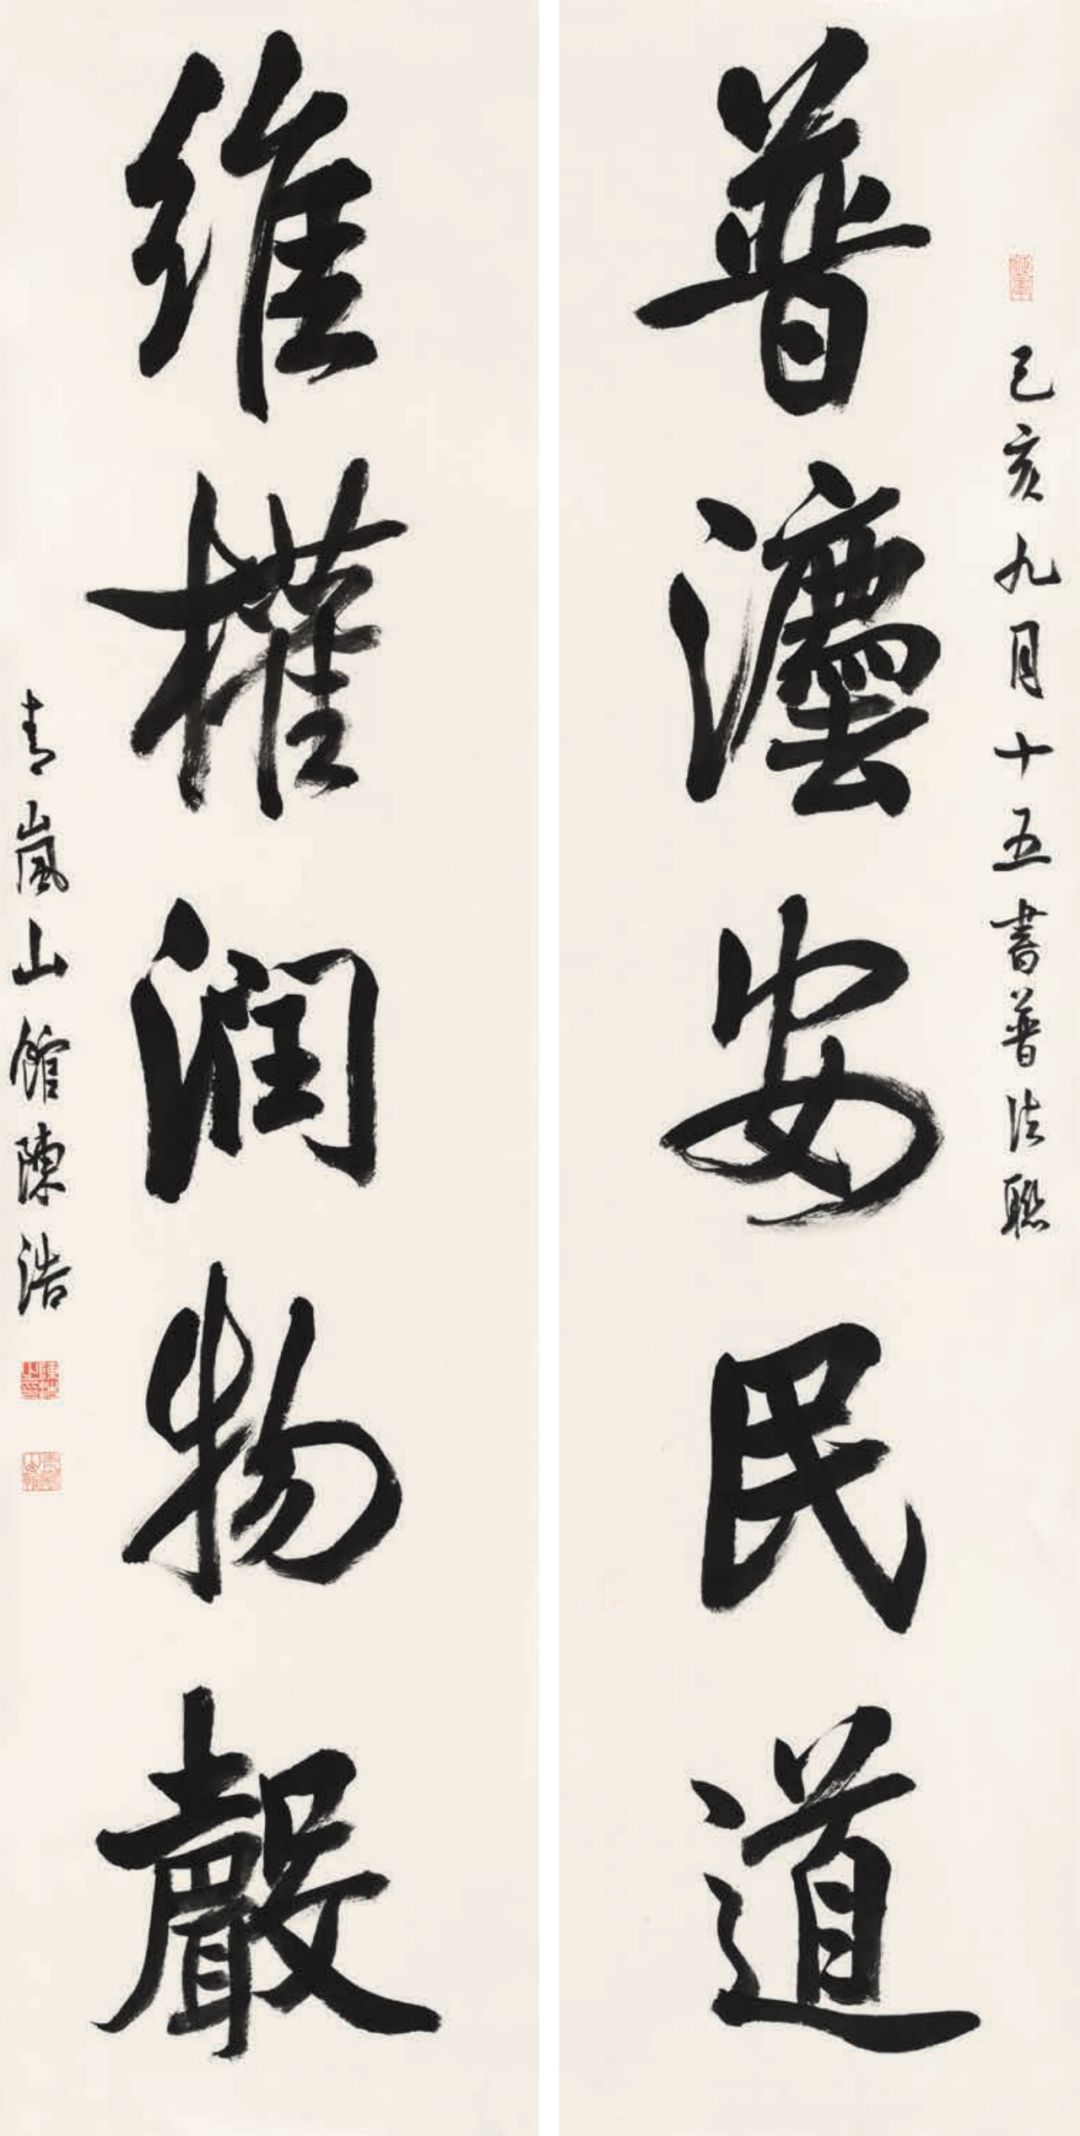 己亥九月十五書普法聯
普灋安民道
維權潤物聲
青嵐山館陳浩